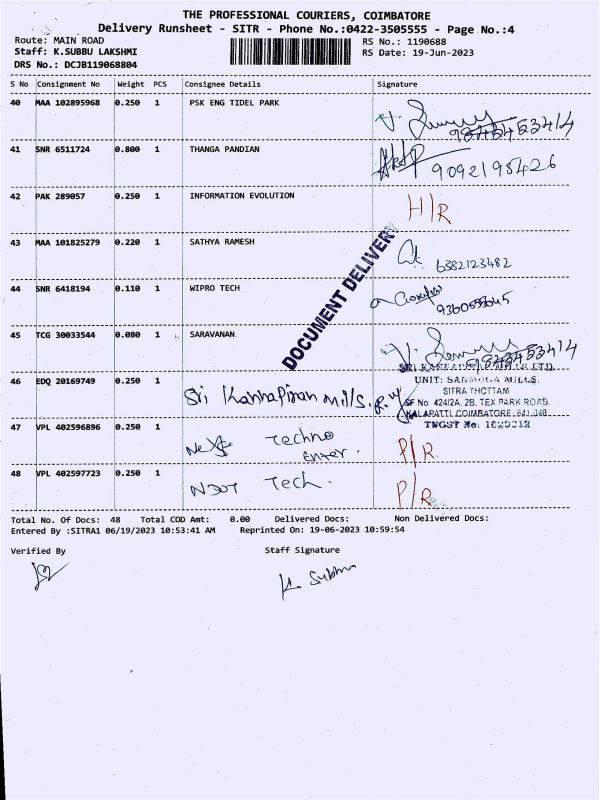 THE PROFESSIONAL COURIERS, COIMBATORE
Delivery Runsheet - SITR - Phone No.:0422-3505555 - Page No.:4
Route: MAIN ROAD RS No.: 1190688
Staff: K.SUBBU LAKSHMI RS Date: 19-Jun-2023
DRS No.: DCJB119068804
S No Consignment No Weight PCS Consignee Details Signature
40 MAA 102895968 0.250 1 PSK ENG TIDEL PARK
41 SNR 6511724 0.800 1 THANGA PANDIAN 9092198426
42 PAK 289057 0.250 1 INFORMATION EVOLUTION H/R
43 MAA 101825279 0.220 1 SATHYA RAMESH 6382123482
DOCUMENT DELIVERY
44 SNR 6418194 0.110 1 WIPRO TECH
45 TCG 30033544 0.080 1 SARAVANAN
46 EDQ 20169749 0.250 1 Sri Kannapiran Mills.
UNIT: MILLS.
SITRA THOTTAM
SF No. 424/2A, 2B, TEX PARK ROAD,
KALAPATTI, COIMBATORE
TNGST No:
47 VPL 402596896 0.250 1 Techno P/R
48 VPL 402597723 0.250 1 Tech. P/R
Total No. Of Docs: 48 Total COD Amt: 0.00 Delivered Docs: Non Delivered Docs:
Entered By :SITRA1 06/19/2023 10:53:41 AM Reprinted On: 19-06-2023 10:59:54
Verified By Staff Signature
K. Subbu